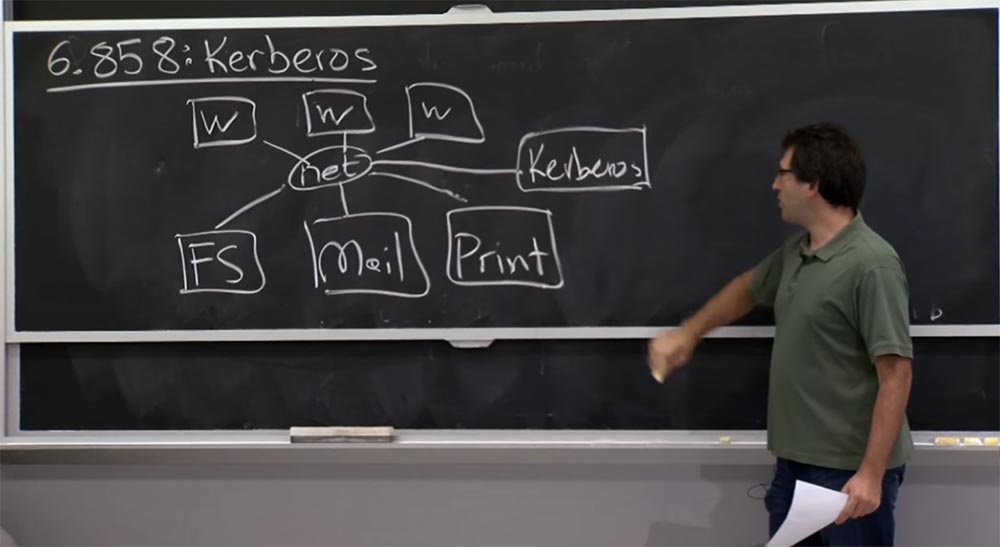 6.858: Kerberos
W W W
net
Kerberos
FS Mail Print